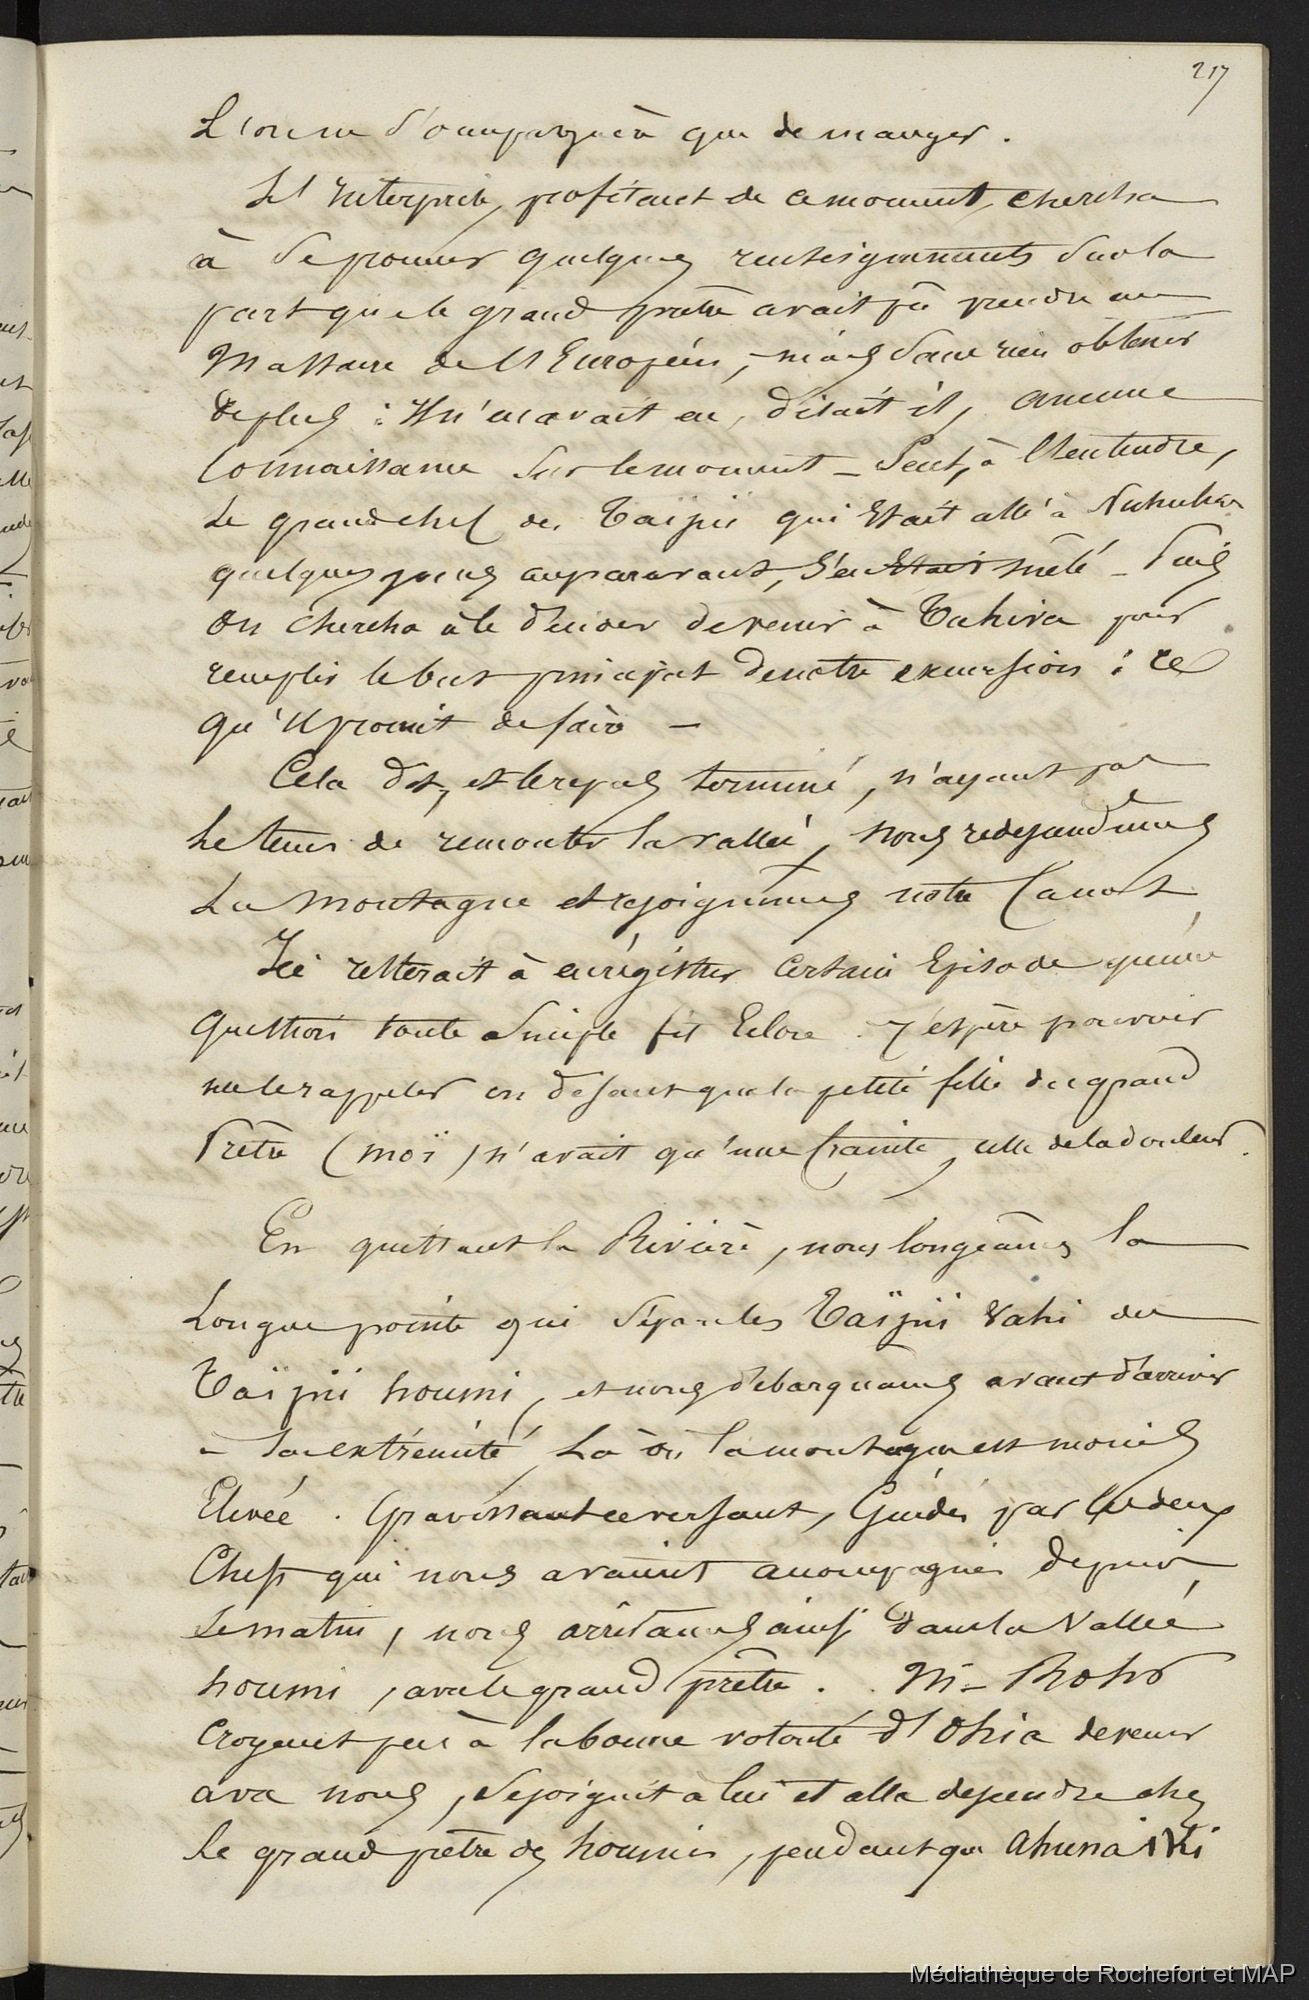 217
que de manger.
L'Interprète, profitant de ce moment, chercha
à se procurer quelques renseignements sur la
part que le grand prêtre avait pû prendre au
Massacre de l'Européen, mais sans rien obtenir
de plus : Il n'en avait eu, disait il, aucune
Connaissance sur le moment _ Seul, à l'entendre,
Le grand chef des Taïpii qui Etait allé à Nukuhiva
quelques jours auparavant, s'en Etait mêlé _ Puis
On chercha à le décider de venir à Tahiva pour
remplir le but principal de notre excursion : ce
qu'Il promit de faire _
Cela dit, et le repas terminé, n'ayant pas
le tems de remonter la vallée, nous redescendimes
La montagne et rejoignimes notre Canot
Ici resterait à enrégistrer certain Episode qu'une
Question toute simple fit Eclore. J'espère pouvoir
me le rappeler en disant que la petite fille du grand
Prêtre (moï) n'avait qu'une Crainte, celle de la douleur.
En quittant la Rivière, nous longeâmes la
Longue pointe qui sépare les Taïpii Vahi des
Taïpii houmi, et nous débarquames avant d'arriver
à son extrémité, Là où la montagne est moins
Elevée. Gravissant ce versant, Guidés par les deux
Chefs qui nous avaient accompagnés depuis
Le matin, nous arrivames ainsi dans la Vallée
houmi, avec le grand prêtre. M_ Rohr
Croyant peu à la bonne volonté d'Ohia de venir
avec nous, se joignit à lui et alla descendre chez
le grand prêtre des houmis, pendant que